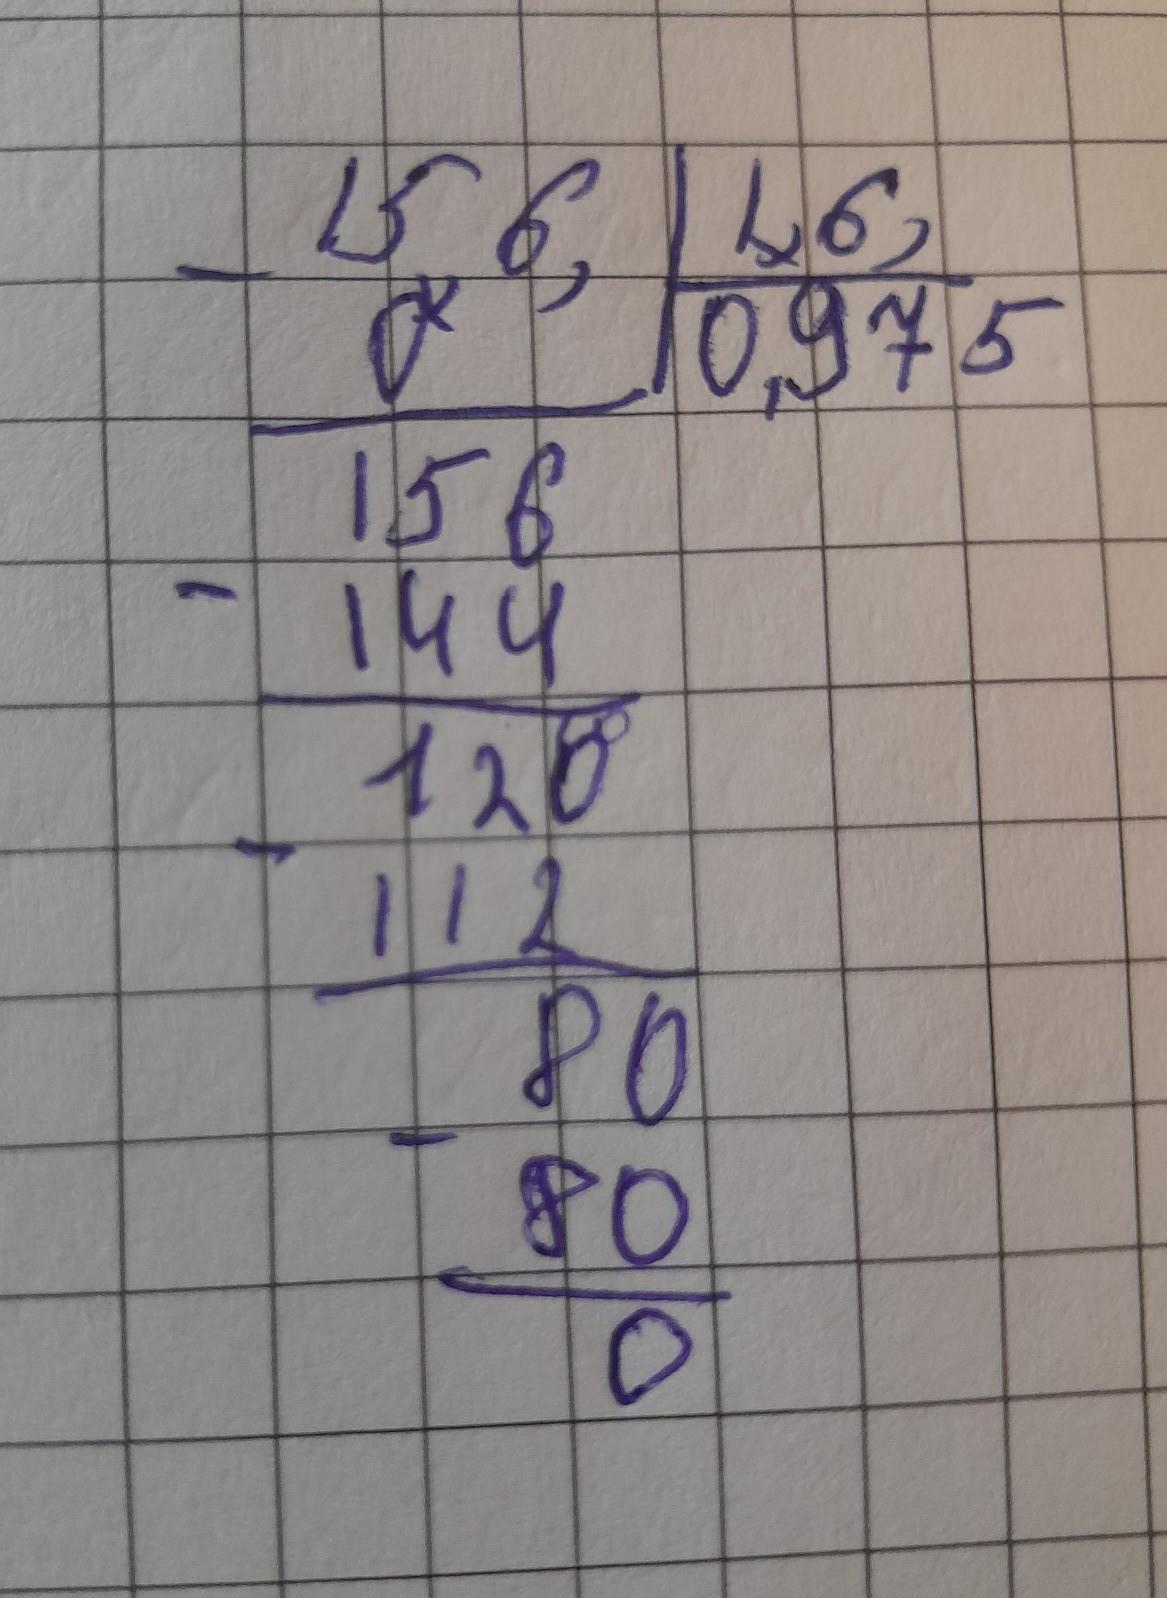 - 15,6, | 1,6,
0 | 0,975
156
- 144
120
- 112
80
- 80
0